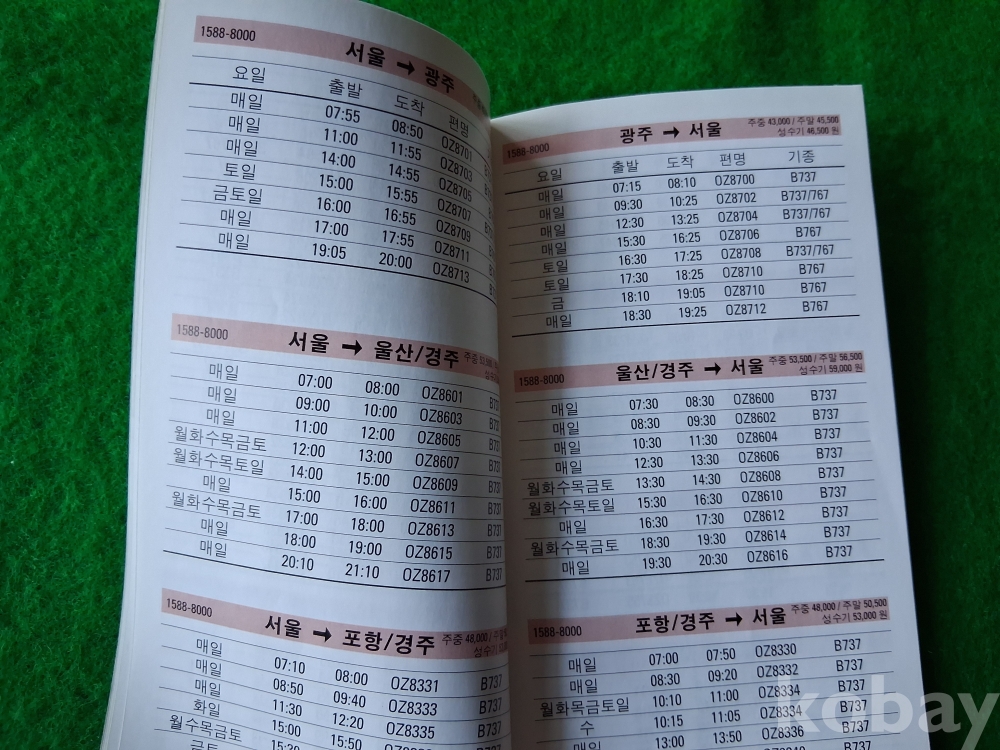 1588-8000 서울 → 광주
요일 출발 도착 편명
매일 07:55 08:50 OZ8701
매일 11:00 11:55 OZ8703
매일 14:00 14:55 OZ8705
토일 15:00 15:55 OZ8707
금토일 16:00 16:55 OZ8709
매일 17:00 17:55 OZ8711
매일 19:05 20:00 OZ8713
1588-8000 서울 → 울산/경주
매일 07:00 08:00 OZ8601 B737
매일 09:00 10:00 OZ8603 B737
매일 11:00 12:00 OZ8605 B737
월화수목금토 12:00 13:00 OZ8607 B737
월화수목토일 14:00 15:00 OZ8609 B737
매일 15:00 16:00 OZ8611 B737
월화수목금토 17:00 18:00 OZ8613 B737
매일 18:00 19:00 OZ8615 B737
매일 20:10 21:10 OZ8617 B737
1588-8000 서울 → 포항/경주 주중 48,000 / 주말
매일 07:10 08:00 OZ8331 B737
매일 08:50 09:40 OZ8333 B737
매일 11:30 12:20 OZ8335 B737
화일 15:00 15:50
월수목금토 15:30
1588-8000 광주 → 서울 주중 43,000 / 주말 45,500
성수기 46,500 원
요일 출발 도착 편명 기종
매일 07:15 08:10 OZ8700 B737
매일 09:30 10:25 OZ8702 B737/767
매일 12:30 13:25 OZ8704 B737/767
매일 15:30 16:25 OZ8706 B767
토일 16:30 17:25 OZ8708 B737/767
토일 17:30 18:25 OZ8710 B767
금 18:10 19:05 OZ8710 B767
매일 18:30 19:25 OZ8712 B767
1588-8000 울산/경주 → 서울 주중 53,500 / 주말 56,500
성수기 59,000 원
매일 07:30 08:30 OZ8600 B737
매일 08:30 09:30 OZ8602 B737
매일 10:30 11:30 OZ8604 B737
매일 12:30 13:30 OZ8606 B737
월화수목금토 13:30 14:30 OZ8608 B737
월화수목토일 15:30 16:30 OZ8610 B737
매일 16:30 17:30 OZ8612 B737
월화수목금토 18:30 19:30 OZ8614 B737
매일 19:30 20:30 OZ8616 B737
1588-8000 포항/경주 → 서울 주중 48,000 / 주말 50,500
성수기 53,000 원
매일 07:00 07:50 OZ8330 B737
매일 08:30 09:20 OZ8332 B737
월화목금토일 10:10 11:00 OZ8334 B737
수 10:15 11:05 OZ8334 B737
13:00 13:50 OZ8336 B737
kobay